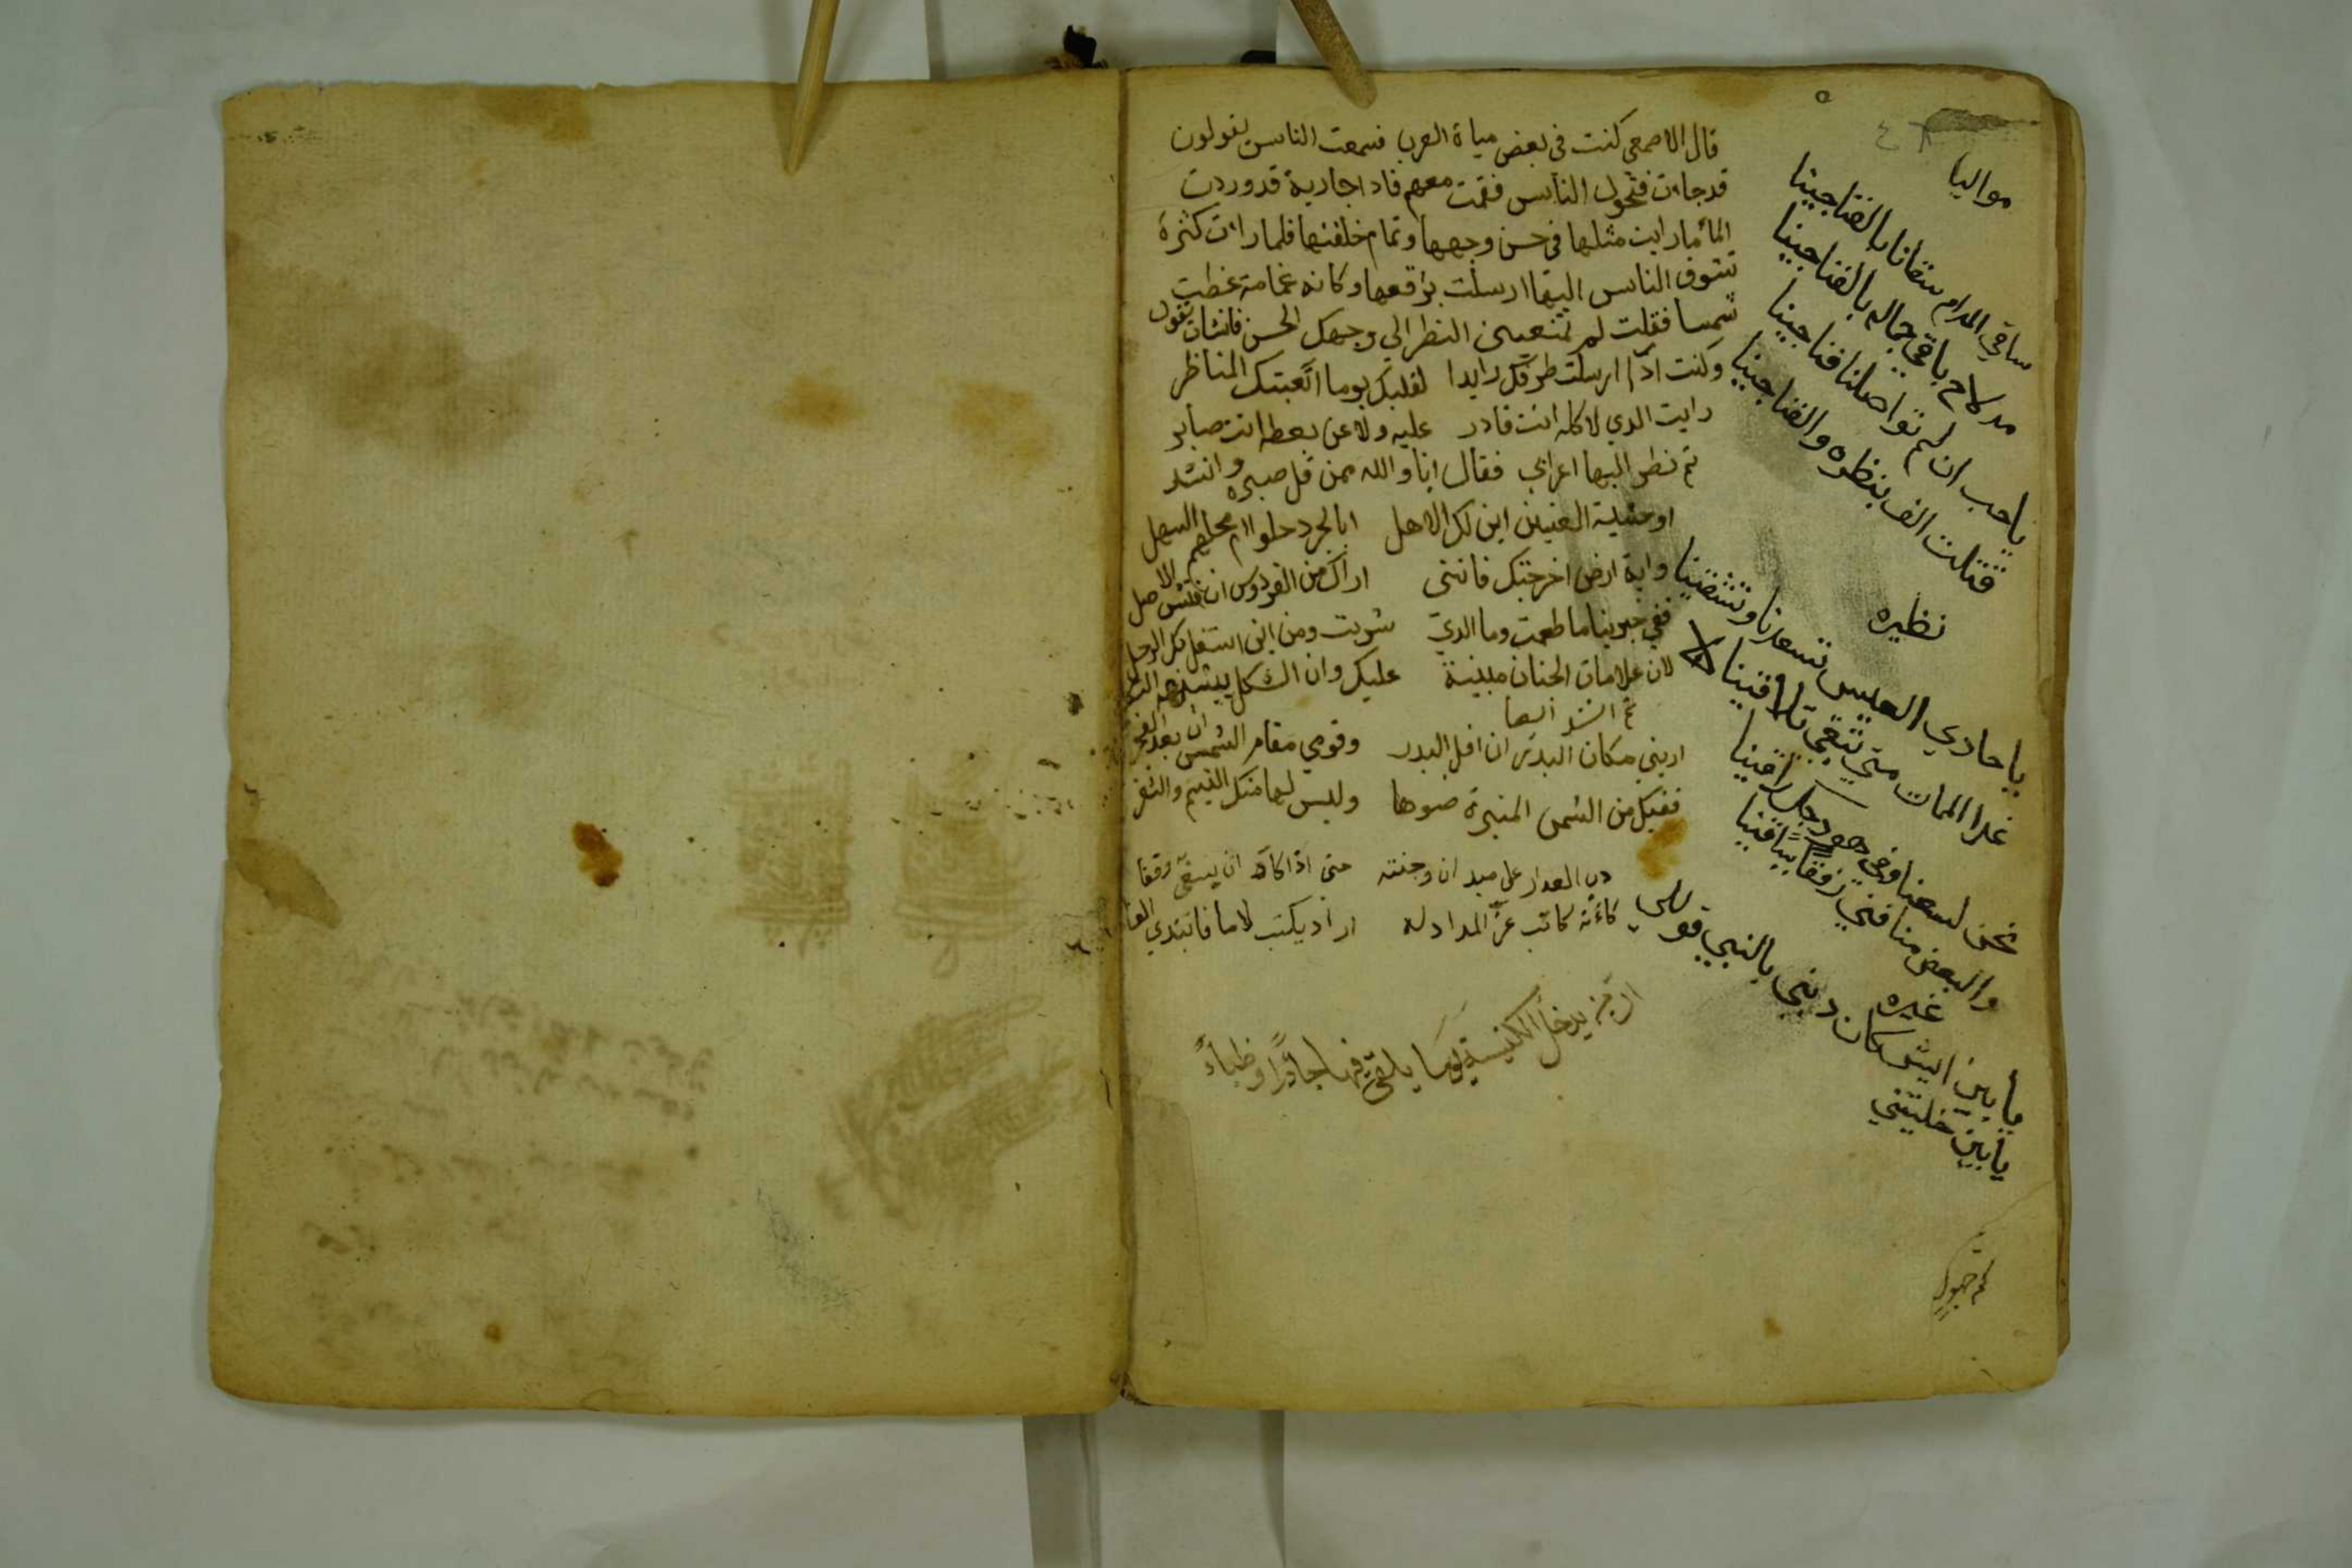 قال الاصمعي كنت في بعض مياة العرب فسمعت الناس يقولون
قد جاات فتحول الناس فقمت معهم فادا جارية قد وردت
الماء ما رايت مثلها في حسن وجهها وتمام خلقتها فلما رات كثرة
تشوف الناس اليها ارسلت برقعها وكانه غمامة غطت
شمسا فقلت لم تمنعينى النظر الى وجهك الحسن فانشات تقول
وكنت اذا ارسلت طرفك رايدا لقلبك يوما اتعبتك المناظر
رايت الدي لا كله انت قادر عليه ولا عن بعضه انت صابر
تم نظر اليها اعرابي فقال انا والله ممن قل صبره وانشد
او حشية العنين اين لك الاهل ابالجرد حلوا ام محلهم السهل
واية ارض اخرجتك فانني اراك من الفردوس ان فتش الاصل
قفي خبرينا ما طعمت وما الدي شربت ومن اين استقل بك الرحل
لان علامات الجنان مبينة عليك وان الشكل يشبهه الشكل
تم انشد ايضا
اريني مكان البدر ان افل البدر وقومي مقام الشمس ان بعد الفجر
ففيك من الشمس المنيرة ضوها وليس لها منك التبسم والثغر
دب العدار على ميدان وجنته حتى اذا كاد ان يسقى وقفا
كأنه كاتب عز المداد له اراد يكتب لاما فابتدي الفا
ان من يدخل الكنيسة يوما يلقى فيها جاذرا وظباء
مواليا
ساقي المدام سقانا بالفناجينا
مد لاح باقي جماله بالفناجينا
يا حب ان لم تواصلنا فناجينا
قتلت الف بنظره والفناجينا
نظيره
يا حادي العيس تسعدنا وتشقينا
غدا الممات متي نبقى تلاقينا
نحن لسعنا وفي هودجك راقينا
والبعض منا فني رفقا بباقينا
غيره
يا بين ايش كان ديني بالنبي قولي
يا بين خليتني